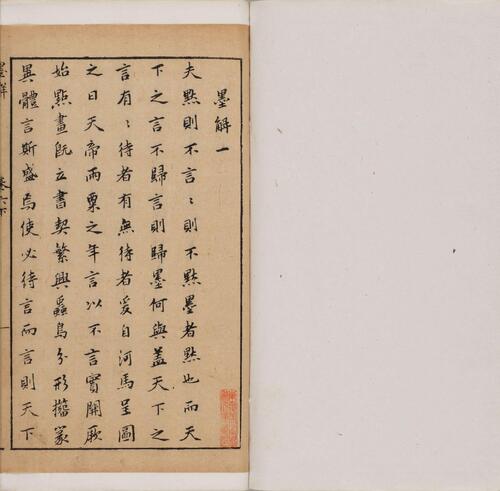 墨解一
夫默則不言〻則不默墨者默也而天
下之言不歸言則歸墨何與蓋天下之
言有〻待者有無待者爰自河馬呈圖
之日天帝雨粟之年言以不言實開厥
始點畫既立書契繁興蟲鳥分形籀篆
異體言斯盛焉使必待言而言則天下
墨解
卷六下
一